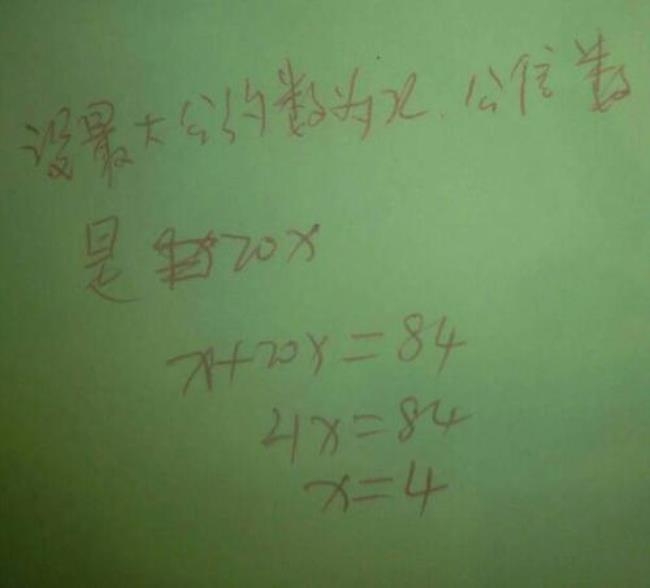 设最大公约数为x.公倍数
是20x
x+20x=84
21x=84
x=4